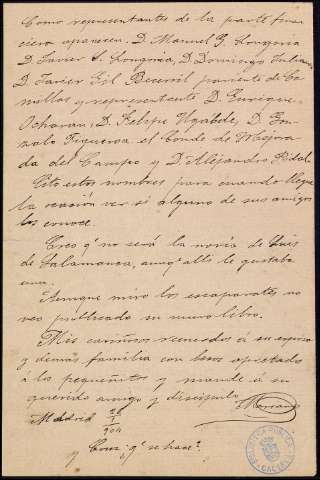 Como representantes de la parte finan
ciera aparecen: D. Manuel G. Longoria
D. Javier S. Longoria, D. Domingo Juliana
D. Javier Gil Becerril pariente de Ca
nillas y representante D. Enrique
Ocharan, D. Felipe Ugalde, D. Gon
zalo Figueroa el Conde de Mejora
da del Campo y D. Alejandro Pidal
Cito estos nombres para cuando llegue
la ocasión ver si alguno de sus amigos
los conoce.
Creo qe no será la novia de Luis
de Salamanca, aunqe allí le gustaba
una.
Aunque miro los escaparates no
veo publicado su nuevo libro.
Mis cariñosos recuerdos á su esposa
y demás familia con beso apretado
á los pequeñitos y mande á su
querido amigo y discípulo
Madrid
904
y Coria: qe se hace?
BIBLIOTECA PUBLICA
CACERES